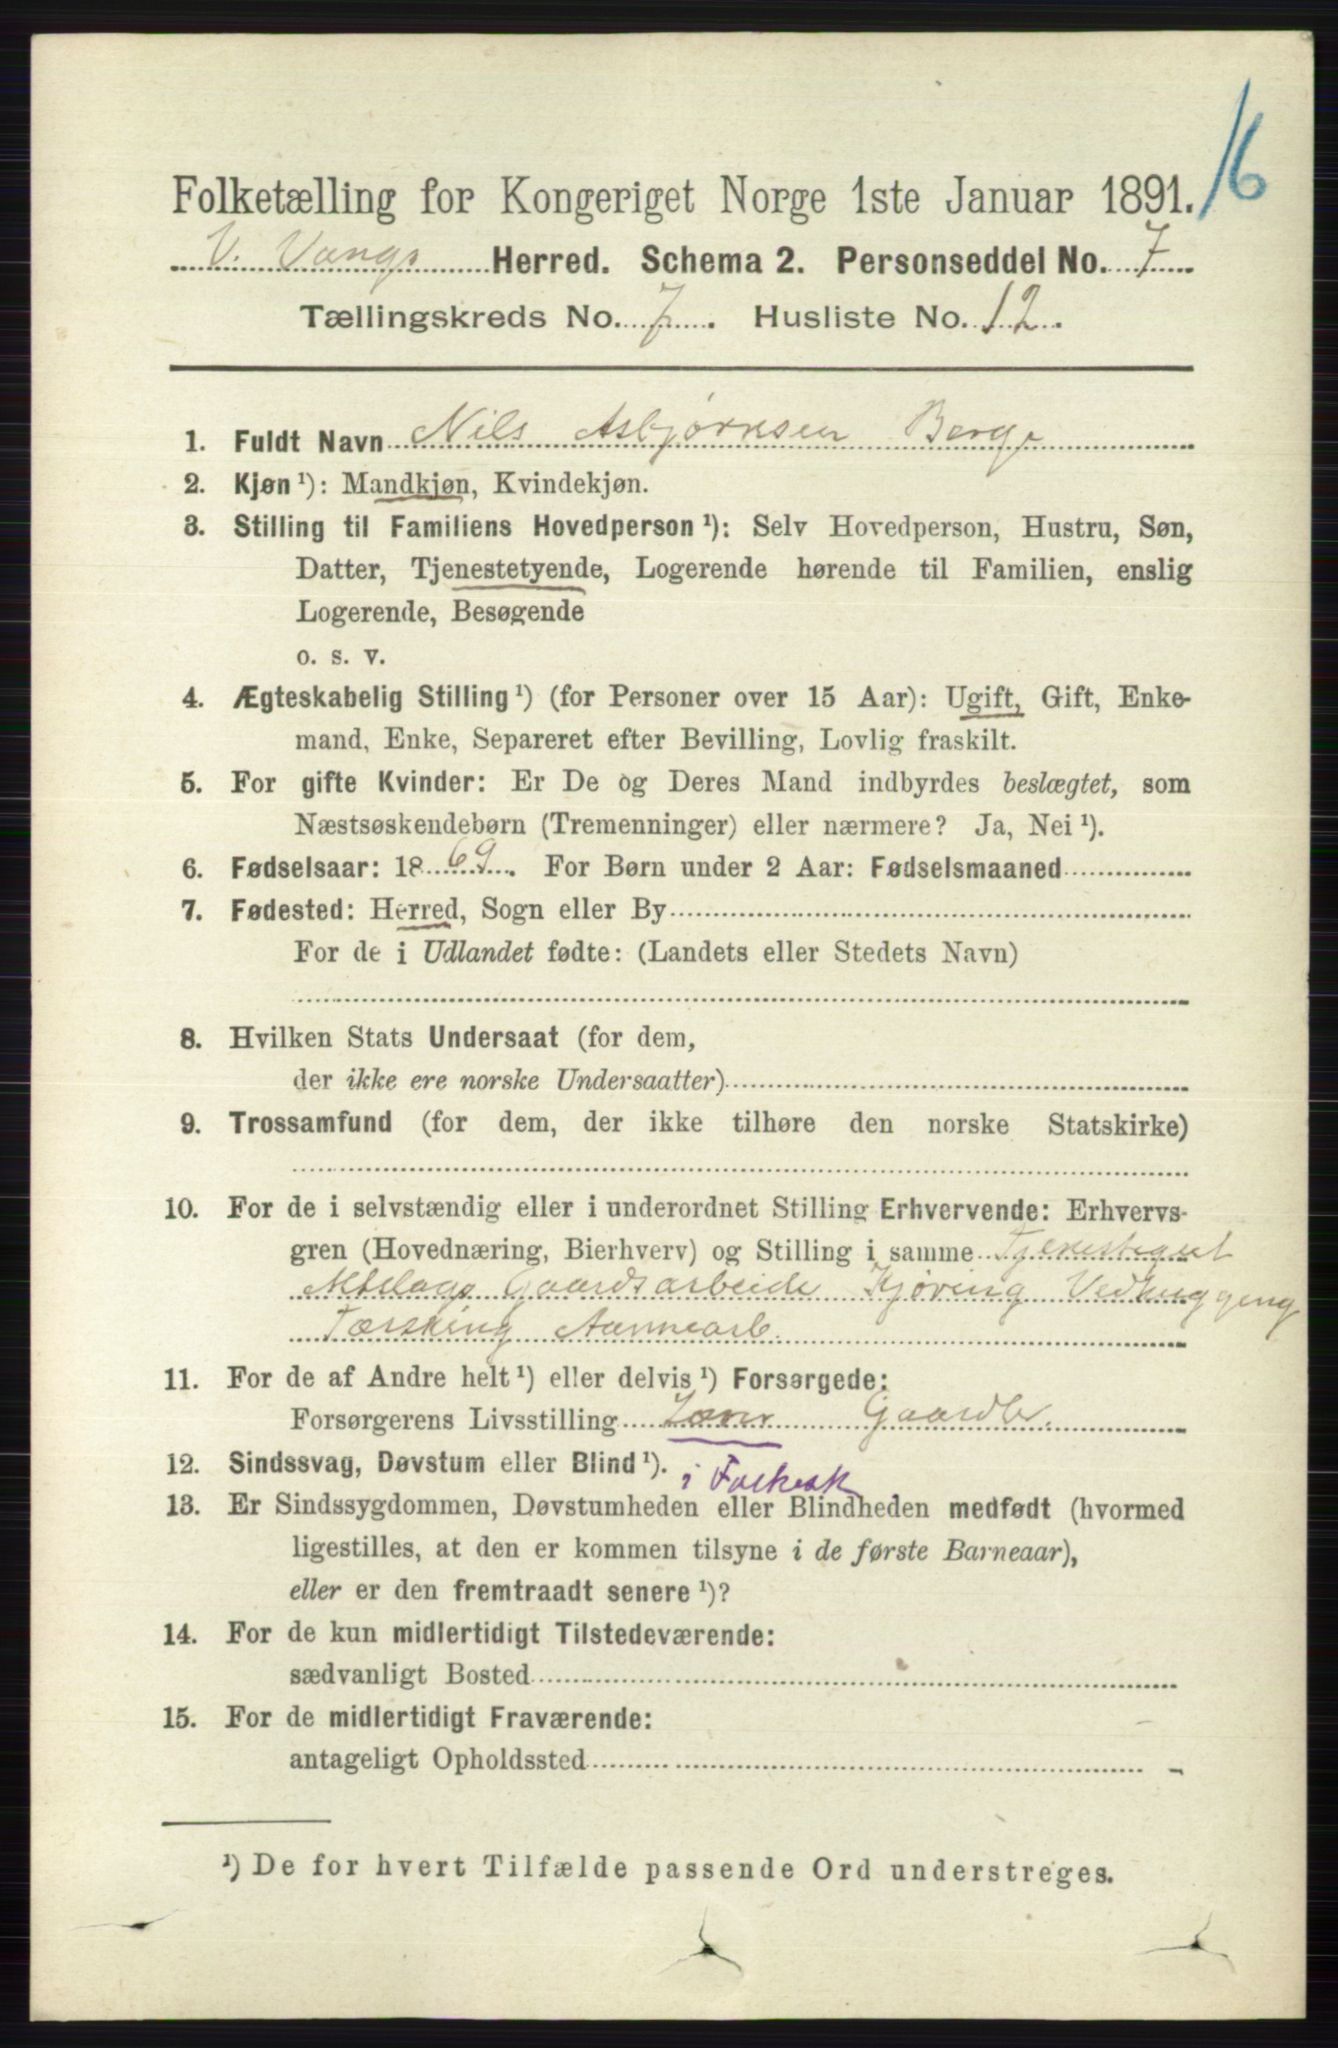 16
Folketælling for Kongeriget Norge 1ste Januar 1891.
V. Vangs Herred. Schema 2. Personseddel No. 7
Tællingskreds No. 7. Husliste No. 12.
1. Fuldt Navn Nils Asbjørnsen Berge
2. Kjøn ¹): Mandkjøn, Kvindekjøn.
3. Stilling til Familiens Hovedperson ¹): Selv Hovedperson, Hustru, Søn,
Datter, Tjenestetyende, Logerende hørende til Familien, enslig
Logerende, Besøgende
o. s. v.
4. Ægteskabelig Stilling ¹) (for Personer over 15 Aar): Ugift, Gift, Enke-
mand, Enke, Separeret efter Bevilling, Lovlig fraskilt.
5. For gifte Kvinder: Er De og Deres Mand indbyrdes beslægtet, som
Næstsøskendebørn (Tremenninger) eller nærmere? Ja, Nei ¹).
6. Fødselsaar: 1869. For Børn under 2 Aar: Fødselsmaaned
7. Fødested: Herred, Sogn eller By
For de i Udlandet fødte: (Landets eller Stedets Navn)
8. Hvilken Stats Undersaat (for dem,
der ikke ere norske Undersaatter)
9. Trossamfund (for dem, der ikke tilhøre den norske Statskirke)
10. For de i selvstændig eller i underordnet Stilling Erhvervende: Erhvervs-
gren (Hovednæring, Bierhverv) og Stilling i samme Tjenestegut
Gaardsarbeide Kjøring Vedhugging
Tærsking
11. For de af Andre helt ¹) eller delvis ¹) Forsørgede:
Forsørgerens Livsstilling Gaardb.
12. Sindssvag, Døvstum eller Blind ¹).
13. Er Sindssygdommen, Døvstumheden eller Blindheden medfødt (hvormed
ligestilles, at den er kommen tilsyne i de første Barneaar),
eller er den fremtraadt senere ¹)?
14. For de kun midlertidigt Tilstedeværende:
sædvanligt Bosted
15. For de midlertidigt Fraværende:
antageligt Opholdssted
¹) De for hvert Tilfælde passende Ord understreges.